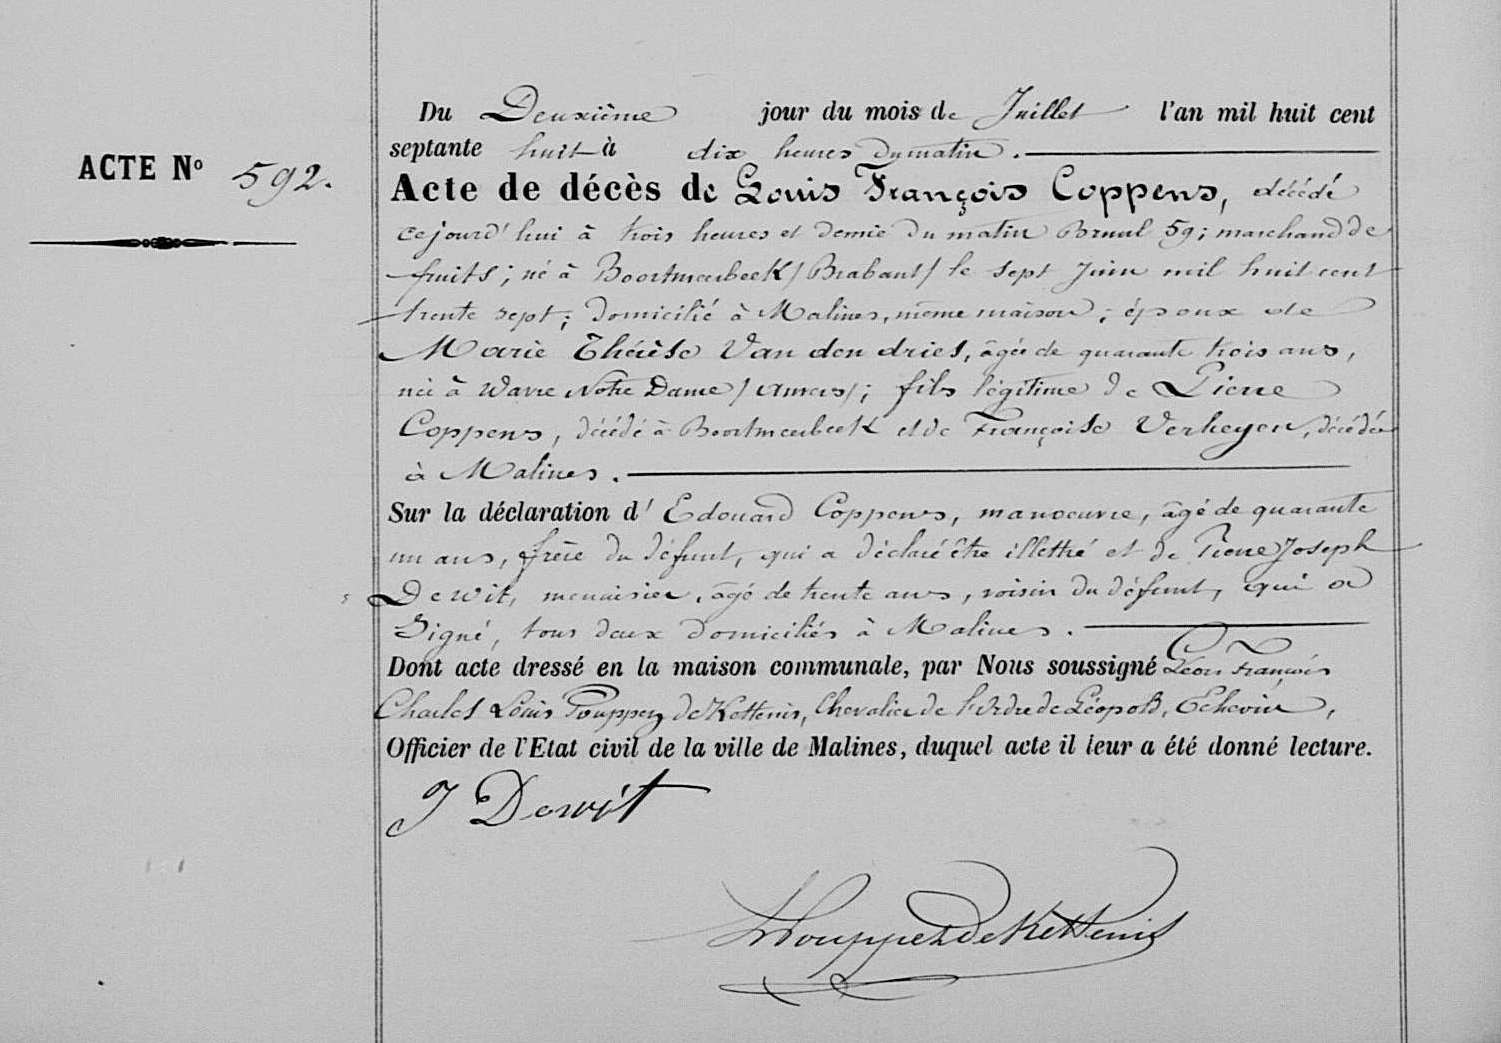 Du Deuxième jour du mois de Juillet l'an mil huit cent
septante huit à dix heures du matin.
ACTE Nº 592.
Acte de décès de Louis François Coppens, décédé
cejourd'hui à trois heures et demie du matin Bruul 59; marchand de
fruits; né à Boortmeerbeek /Brabant/ le sept Juin mil huit cent
trente sept; domicilié à Malines, même maison; époux de
Marie Thérèse Van den dries, âgée de quarante trois ans,
née à Wavre Notre Dame /Anvers/; fils légitime de Pierre
Coppens, décédé à Boortmeerbeek et de Françoise Verheyen, décédée
à Malines.
Sur la déclaration d'Edouard Coppens, manoeuvre, âgé de quarante
un ans, frère du défunt, qui a déclaré être illettré et de Pierre Joseph
Dewit, menuisier, âgé de trente ans, voisin du défunt, qui a
Signé, tous deux domiciliés à Malines.
Dont acte dressé en la maison communale, par Nous soussigné Léon François
Charles Louis Pouppez de Kettenis, Chevalier de l'Ordre de Léopold, Echevin,
Officier de l'Etat civil de la ville de Malines, duquel acte il leur a été donné lecture.
J Dewit
LPouppez de Kettenis